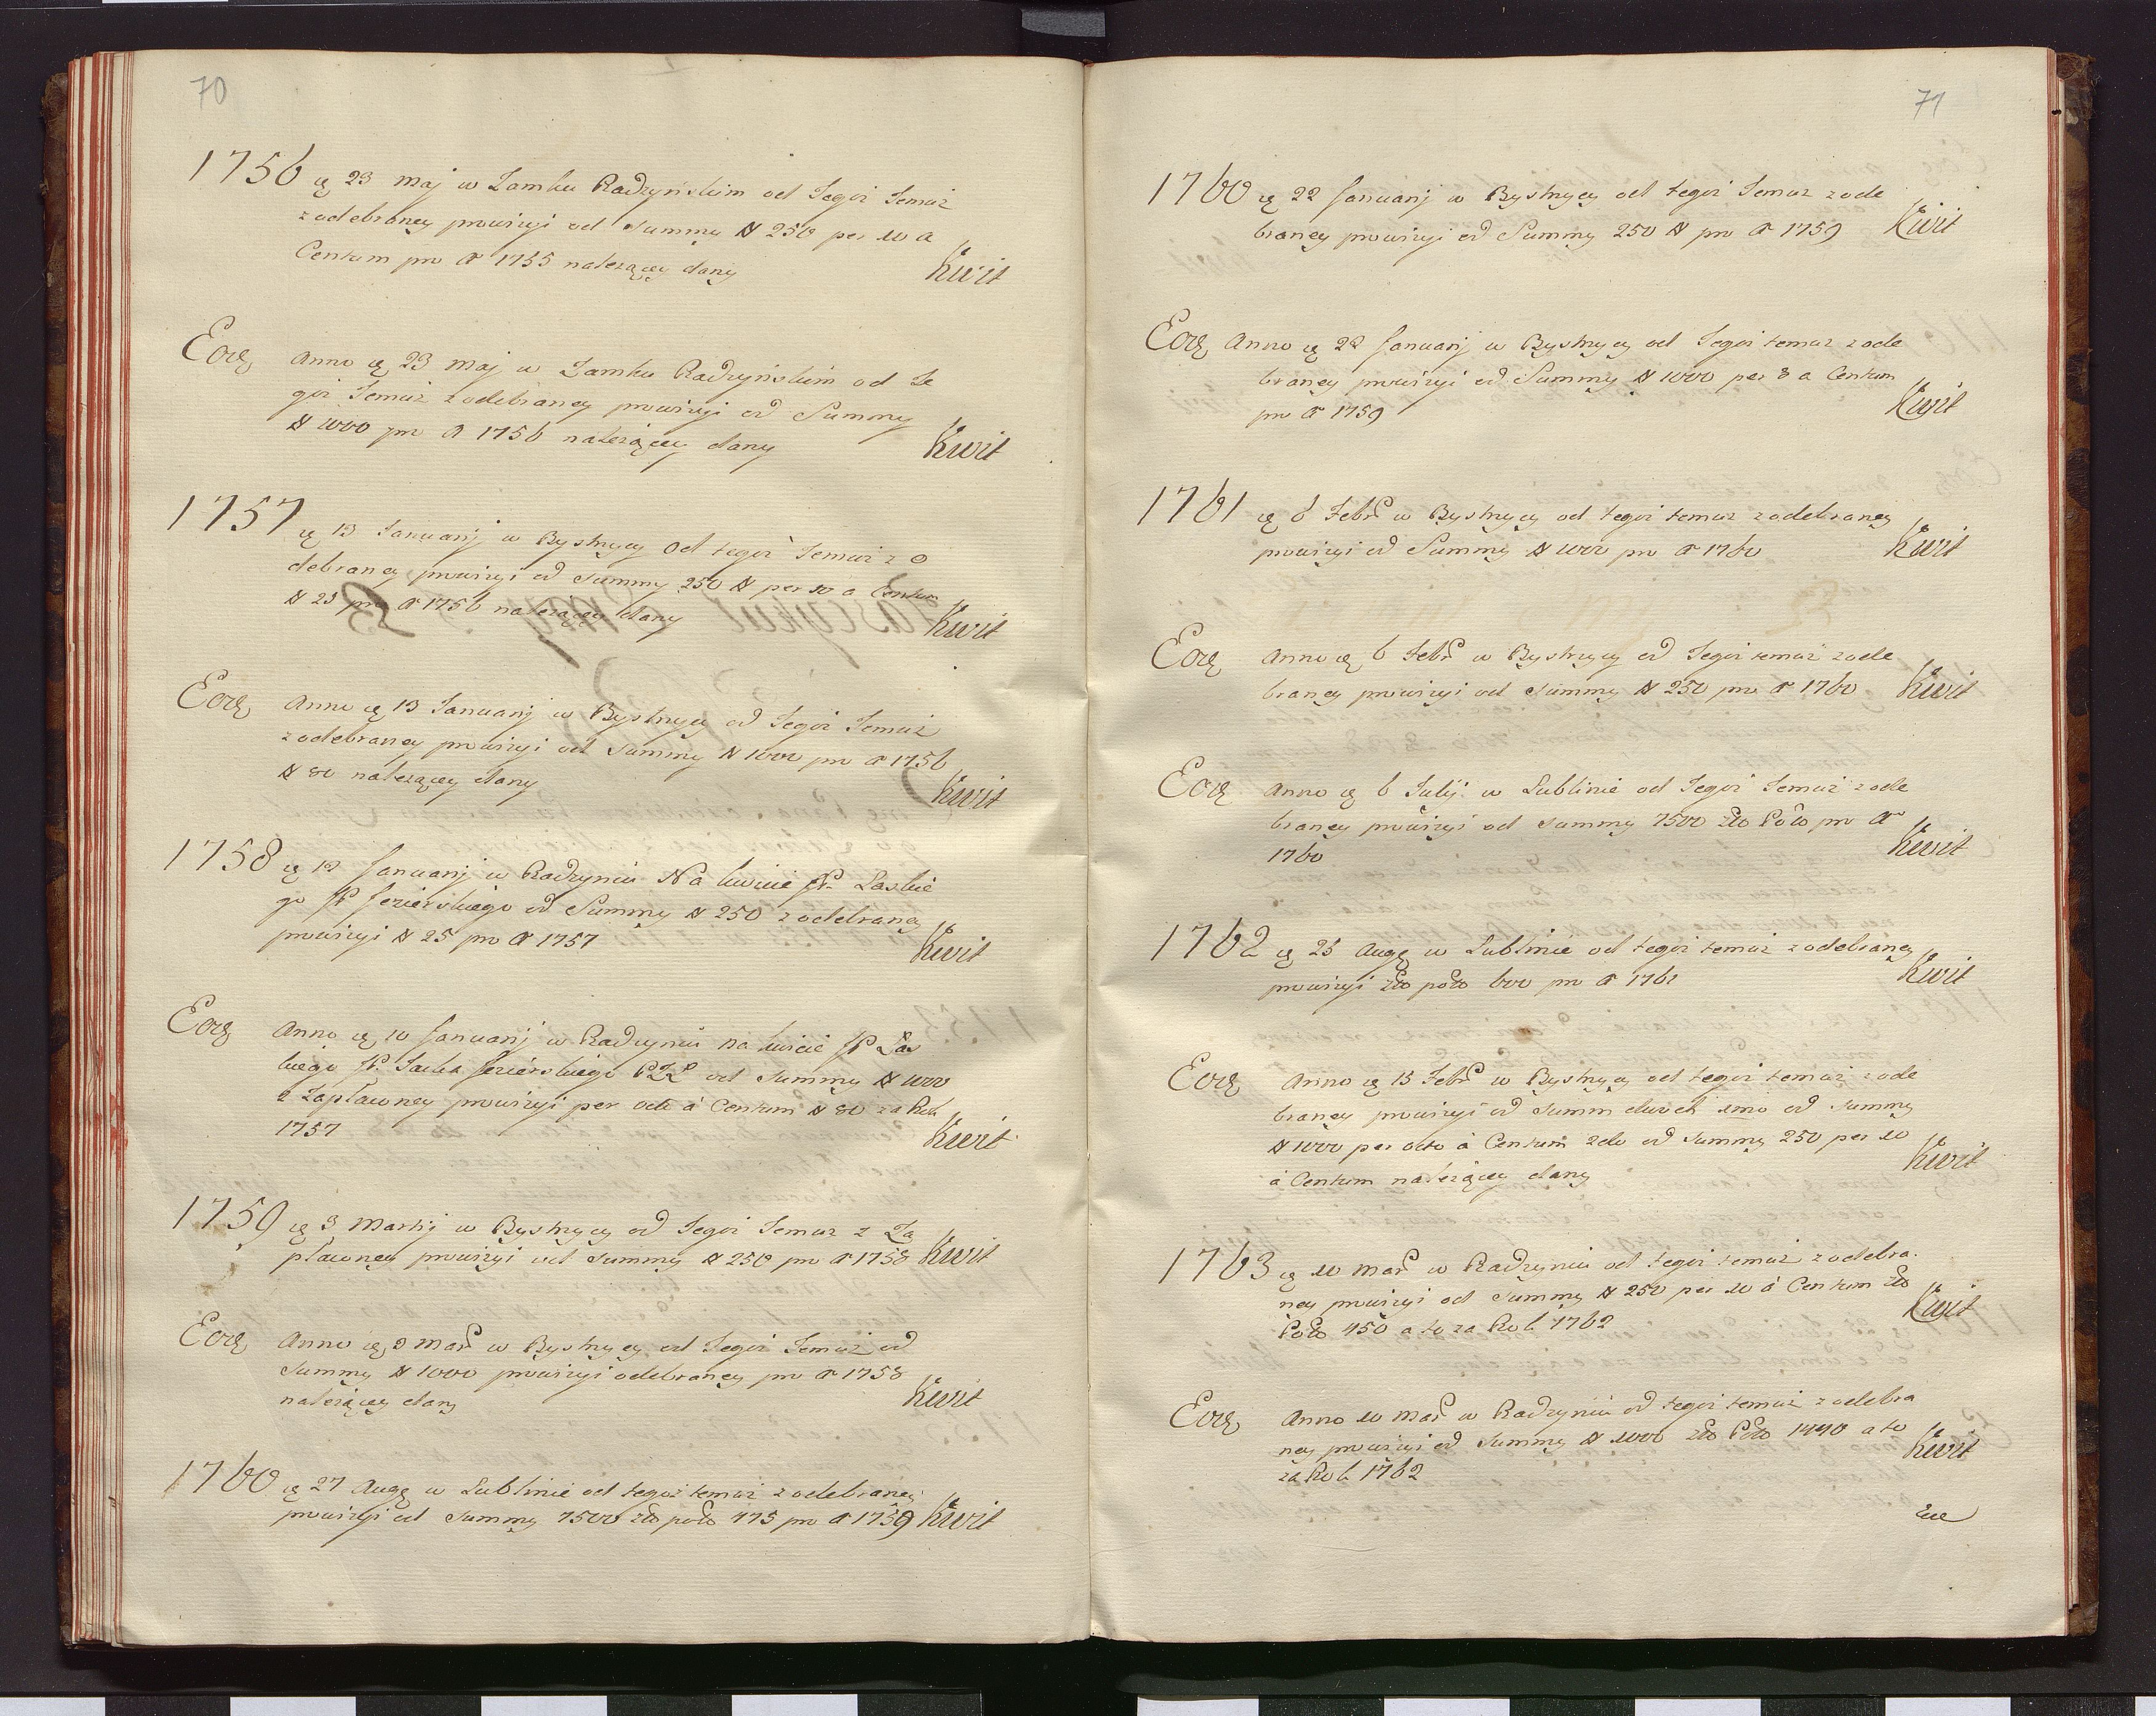 70
1756 ię 23 Maj w Zamku Radzyńskim od Tegoż Temuż
z odebraney prowizyi od Summy # 250 per 10 a
Centum pro Aō 1755 należącey dany Kwit
Eodę Anno ię 23 Maj w Zamku Radzyńskim od Te
goż Temuż z odebraney prowizyi od Summy
# 1000 pro A 1756 należącey dany Kwit
1757 ię 13 Januarij w Bystrzycy Od tegoż Temuż z O
debraney prowizyi od Summy 250 # per 10 a Centum
# 25 pro Aō 1756 należącey dany Kwit
Eodę Anno ię 13 Januarij w Bystrzycy od Tegoż Temuż
z odebraney prowizyi od Summy # 1000 pro Aō 1756
# 80 należącey dany Kwit
1758 ię 12 Januarij w Radzyniu Na kwicie JP. Laskie
go JP Jezierskiego od Summy # 250 z odebraney
prowizyi # 25 pro Aō 1757 Kwit
Eodę Anno ię 10 Januarij w Radzyniu na kwicie JP Las
kiego JP. Jacka Jezierskiego od Summy # 1000
z Zapłaconey prowizyi per octo á Centum # 80 za Rok
1757 Kwit
1759 ię 3 Martij w Bystrzycy od Tegoż Temuż z Za
płaconey prowizyi od Summy # 250 pro Aō 1758 Kwit
Eodę Anno ię 3 Mar w Bystrzycy od Tegoż Temuż od
Summy # 1000 prowizyi odebraney pro Aō 1758
należącey dany Kwit
1760 ię 27 Augę w Lublinie od tegoż temuż z odebraney
prowizyi od Summy 7500 zło pol̃o 475 pro Aō 1759 Kwit
71
1760 ię 22 Januarij w Bystrzycy od tegoż Temuż z ode
braney prowizyi od Summy 250 # pro Aō 1759 Kwit
Eodę Anno ię 22 Januarij w Bystrzycy od Tegoż temuż z ode
braney prowizyi od Summy # 1000 per 8 a Centum
pro Aō 1759 Kwit
1761 ię 6 Febr w Bystrzycy od tegoż temuż z odebraney
prowizyi od Summy # 1000 pro Aō 1760 Kwit
Eodę Anno ię 6 Febr w Bystrzycy od Tegoż temuż z ode
braney prowizyi od Summy # 250 pro Aō 1760 Kwit
Eodę Anno ię 6 Julij w Lublinie od Tegoż Temuż z ode
braney prowizyi od Summy 7500 zło Pol̃o pro Aō
1760 Kwit
1762 ię 25 Augę w Lublinie od tegoż temuż z odebraney
prowizyi zło pol̃o 600 pro Aō 1761 Kwit
Eodę Anno ię 15 Febr w Bystrzycy od tegoż temuż z ode
braney prowizyi od Summ dwoch 1mo od Summy
# 1000 per octo á Centum 2do od Summy 250 per 10
á Centum należącey dany Kwit
1763 ię 10 Mar w Radzyniu od tegoż temuż z odebra
ney prowizyi od Summy # 250 per 10 á Centum zło
Pol̃o 450 a to za Rok 1762 Kwit
Eodę Anno 10 Mar w Radzyniu od tegoż temuż z odebra
ney prowizyi od Summy # 1000 zło Pol̃o 1440 a to
za Rok 1762 Kwit